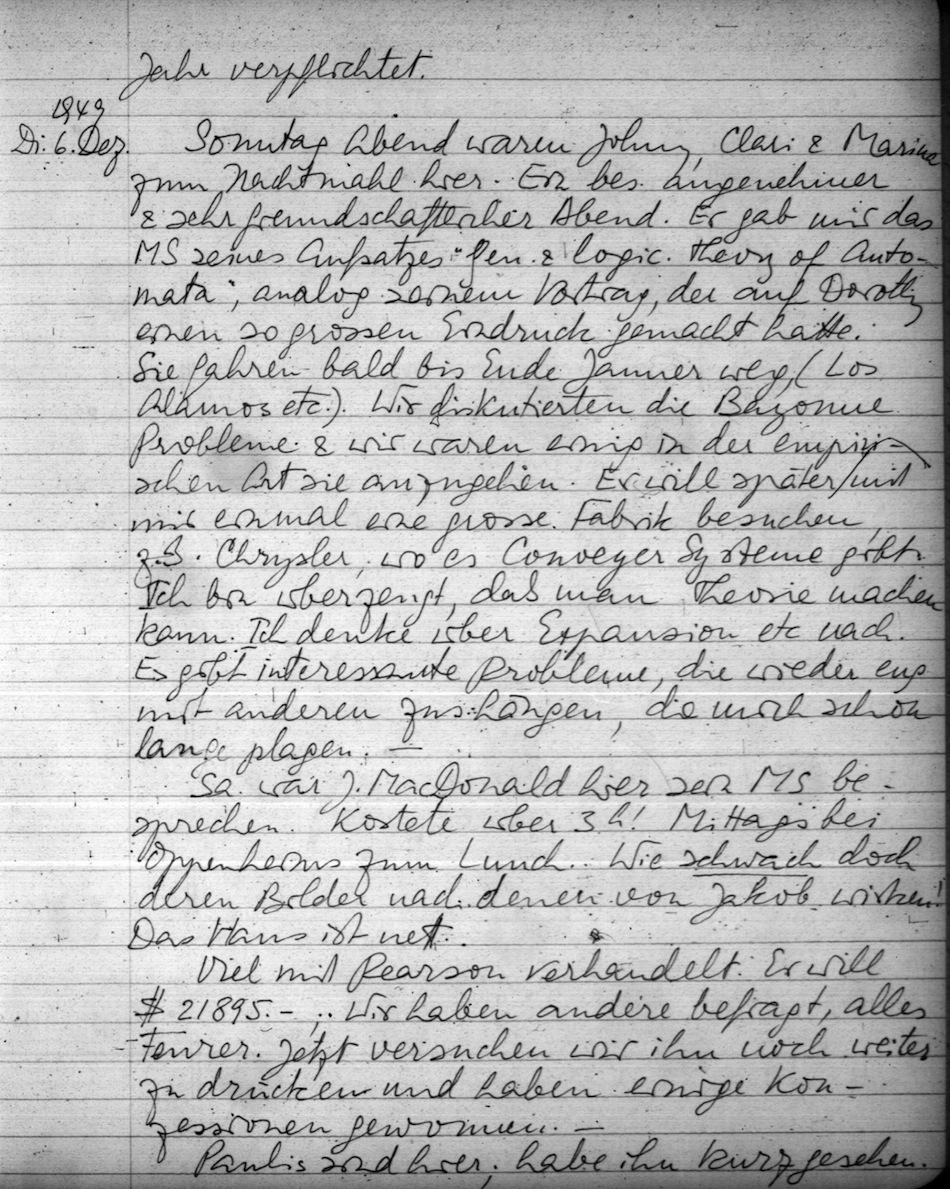 Jahr verpflichtet.
1949
Di. 6. Dez. Sonntag Abend waren Johny, Clari & Marina
zum Nachtmahl hier. Ein bes. angenehmer
& sehr freundschaftlicher Abend. Er gab mir das
MS seines Aufsatzes "Gen. & logic. Theory of Auto-
mata", analog seinem Vortrag, der auf Dorothy
einen so grossen Eindruck gemacht hatte.
Sie fahren bald bis Ende Jänner weg, (Los
Alamos etc.). Wir diskutierten die Bayonne
Probleme & wir waren einig in der empiri-
schen Art sie anzugehen. Er will später mit
mir einmal eine grosse Fabrik besuchen,
z.B. Chrysler, wo es Conveyer Systeme gibt.
Ich bin überzeugt, dass man Theorie machen
kann. Ich denke über Expansion etc nach.
Es gibt interessante Probleme, die wieder eng
mit anderen zus.hängen, die mich schon
lange plagen. —
Sa. war J. MacDonald hier sein MS be-
sprechen. Kostete über 3 h! Mittags bei
Oppenheims zum Lunch. Wie schwach doch
deren Bilder nach denen von Jakob wirken!
Das Haus ist nett.
Viel mit Pearson verhandelt. Er will
$ 21895.- .. Wir haben andere befragt, alles
teurer. Jetzt versuchen wir ihn noch weiter
zu drücken und haben einige Kon-
zessionen gewonnen. —
Paulis sind hier, habe ihn kurz gesehen.